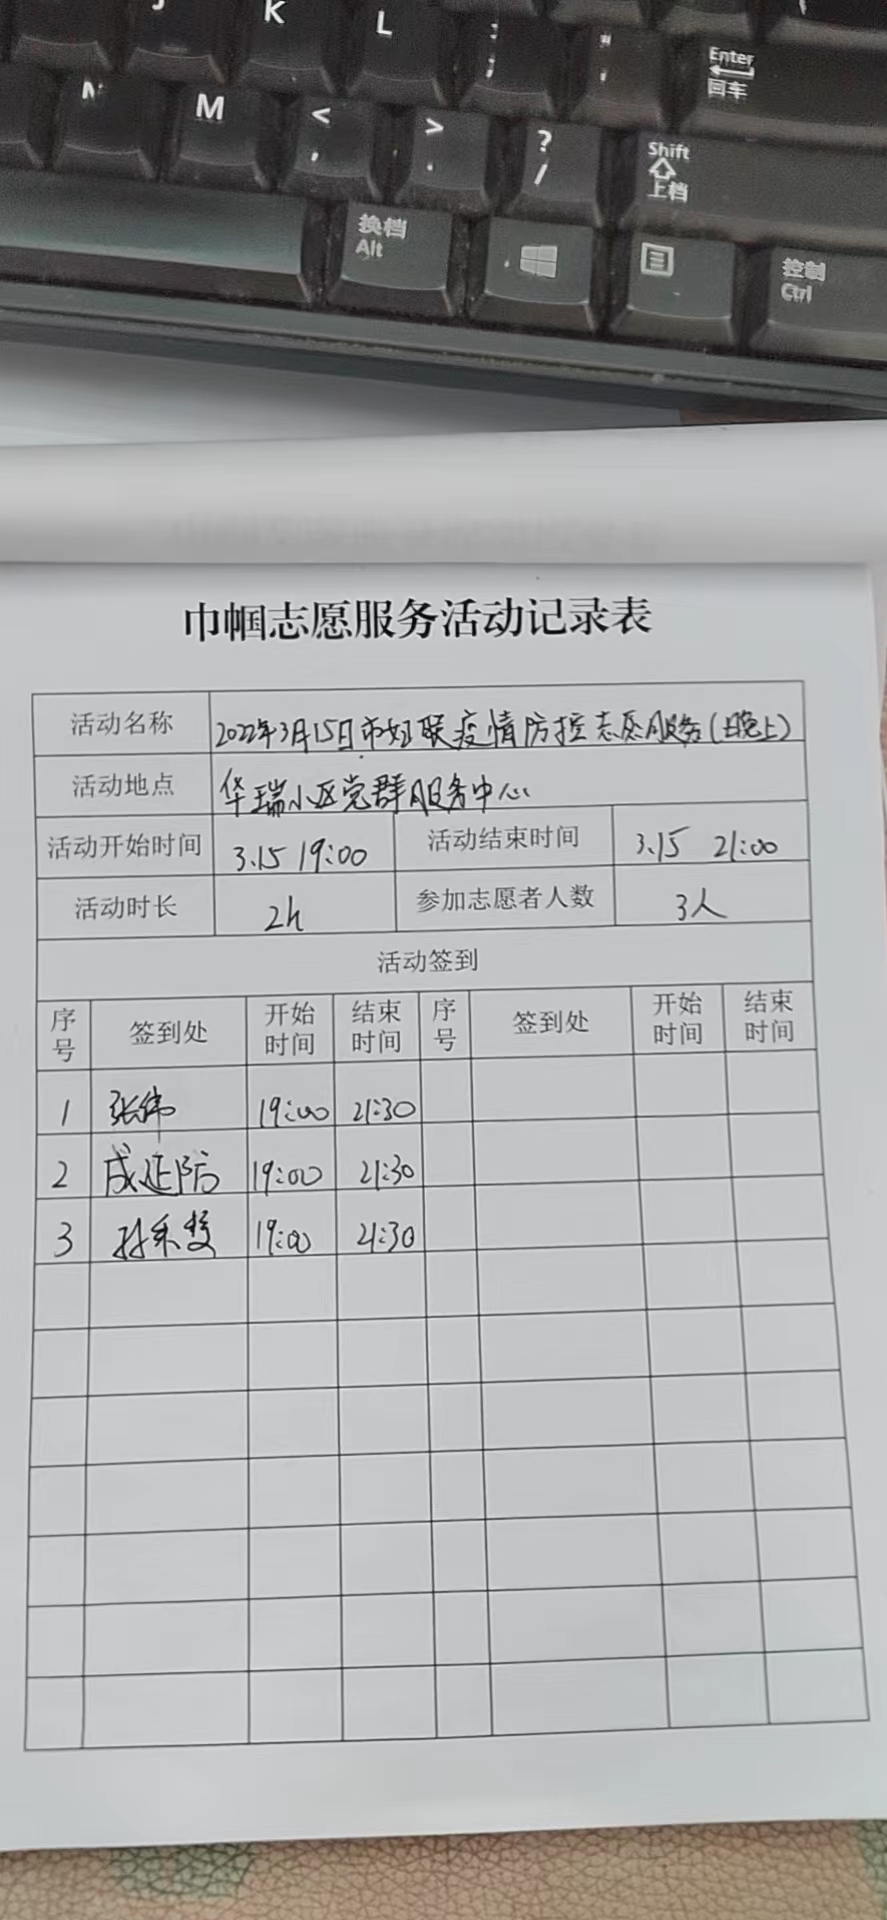 J K L : ; " ' Enter 回车
N M < , > . ? / Shift 上档
换档 Alt 控制 Ctrl
巾帼志愿服务活动记录表
活动名称 2022年3月15日市妇联疫情防控志愿服务(晚上)
活动地点 华瑞小区党群服务中心
活动开始时间 3.15 19:00 活动结束时间 3.15 21:00
活动时长 2h 参加志愿者人数 3人
活动签到
序号 签到处 开始时间 结束时间 序号 签到处 开始时间 结束时间
1 张伟 19:00 21:30
2 成延防 19:00 21:30
3 19:00 21:30